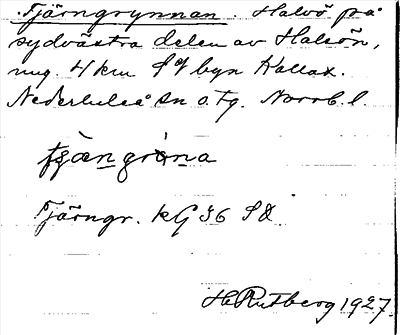 Tjärngrynnan. Halvö på
sydvästra delen av Halsön,
ung. 4 km SV byn Kallax.
Nederluleå sn o. tg. Norrb. l.
Tjärngr. kG 36 SO
H. Rutberg 1927.